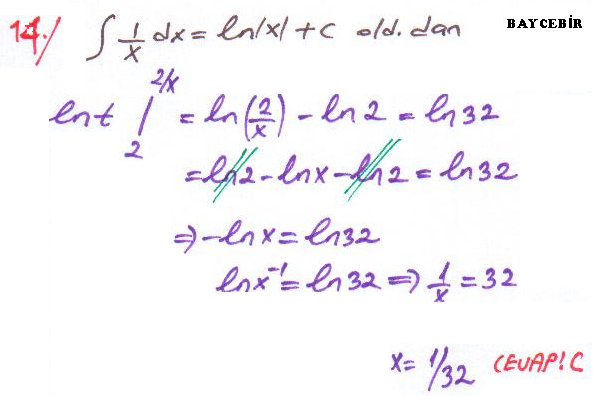 14./ ∫ 1/x dx = ln|x| + c old. dan BAYCEBİR
ln t |₂^(2/x) = ln(2/x) - ln 2 = ln 32
= ln 2 - ln x - ln 2 = ln 32
⇒ -ln x = ln 32
ln x⁻¹ = ln 32 ⇒ 1/x = 32
x = 1/32 CEVAP! C